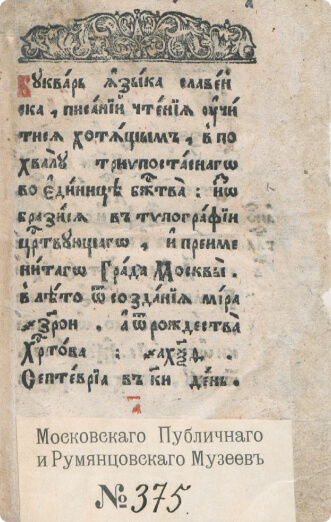 Буква́рь ꙗ҆зы́ка славе́н
ска, писа́нїѧ чте́нїѧ ᲂу҆чи́
тисѧ хотѧ́щымъ, в по
хвалꙋ̀ трⷯиѵпоста́снагѡ
во є҆ди́ницѣ бж҃тва̀: и҆ѡ
брази́сѧ въ тѵпогра́фїи
црⷭ҇твꙋющагѡ, и҆ преиме
ни́тагѡ Гра́да Москвы̀.
в лѣ́то ѿ созда́нїѧ мі́ра
҂зрои а҆ ѿ рождества̀
Хрⷭ҇то́ва: ҂ахѯѳ.
Септе́врїа въ ки де́нь.
а
Московскаго Публичнаго
и Румянцовскаго Музеевъ
№ 375.